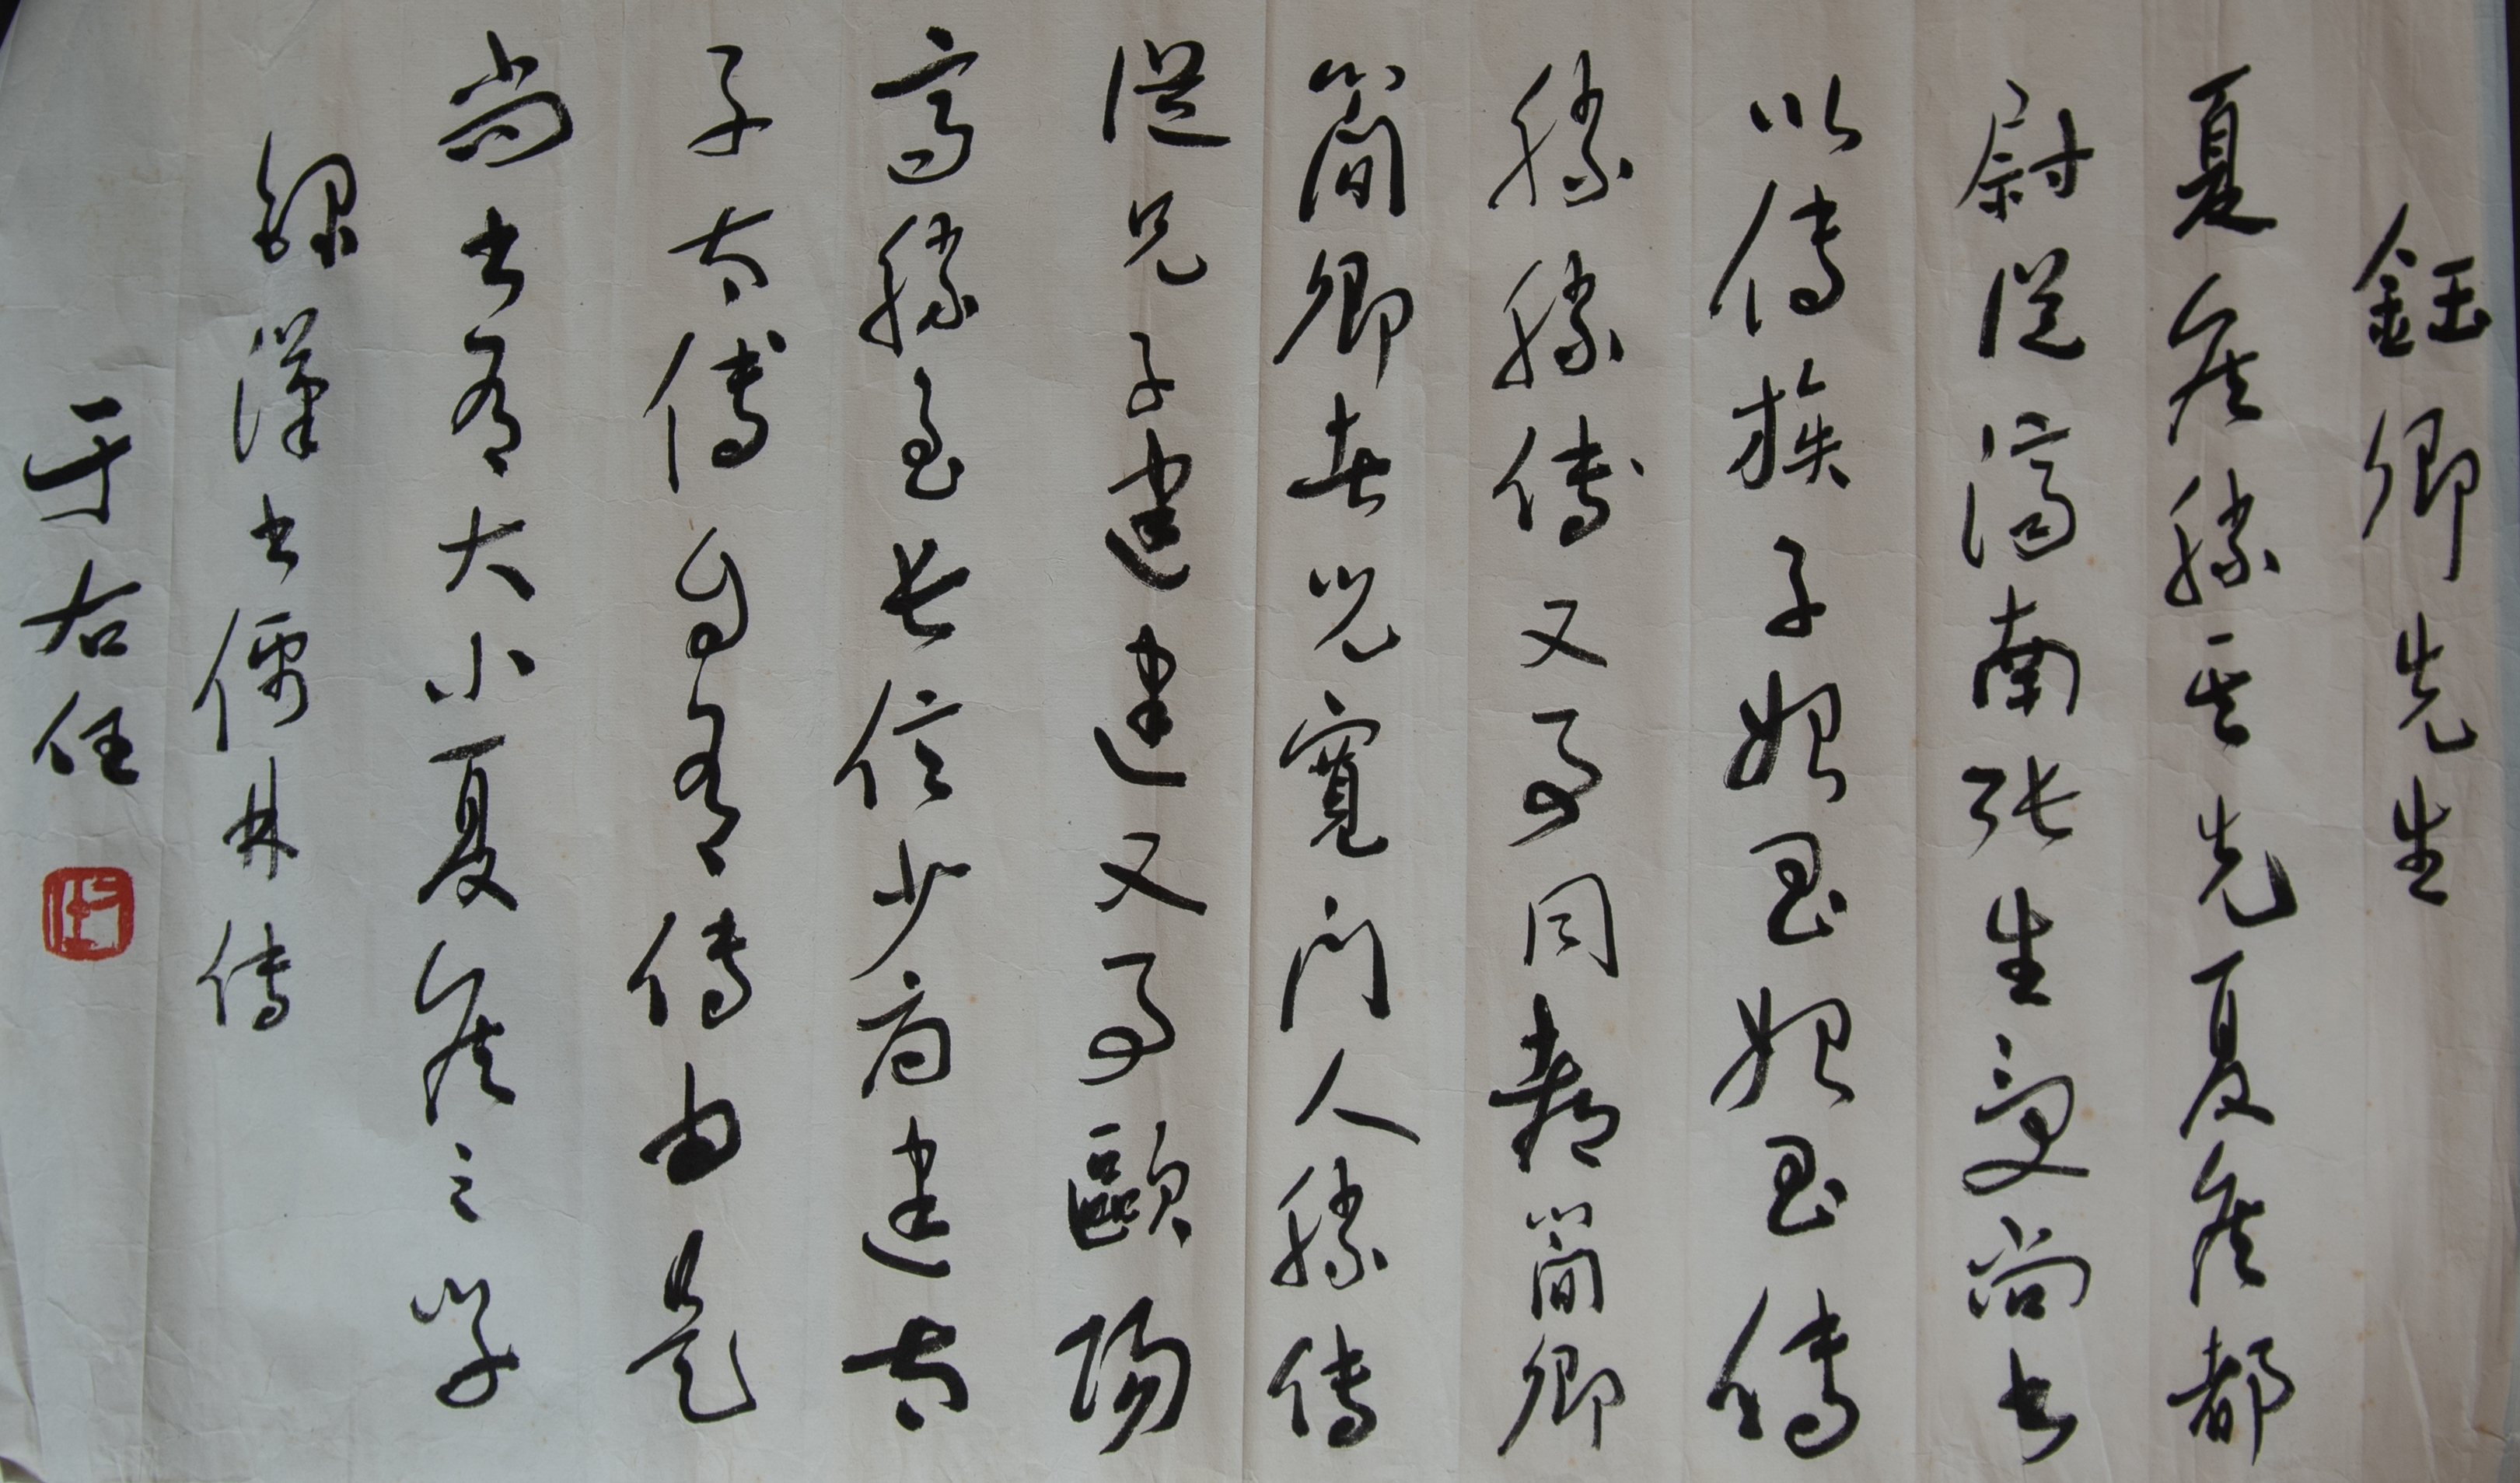 鈺卿先生
夏侯勝其先夏侯都
尉從濟南張生受尚書
以傳族子始昌始昌傳
勝勝傳又事同郡簡卿
簡卿者兒寬門人勝傳
從兄子建建又事歐陽
高勝至長信少府建太
子太傅自有傳由是
尚書有大小夏侯之學
錄漢書儒林傳
于右任